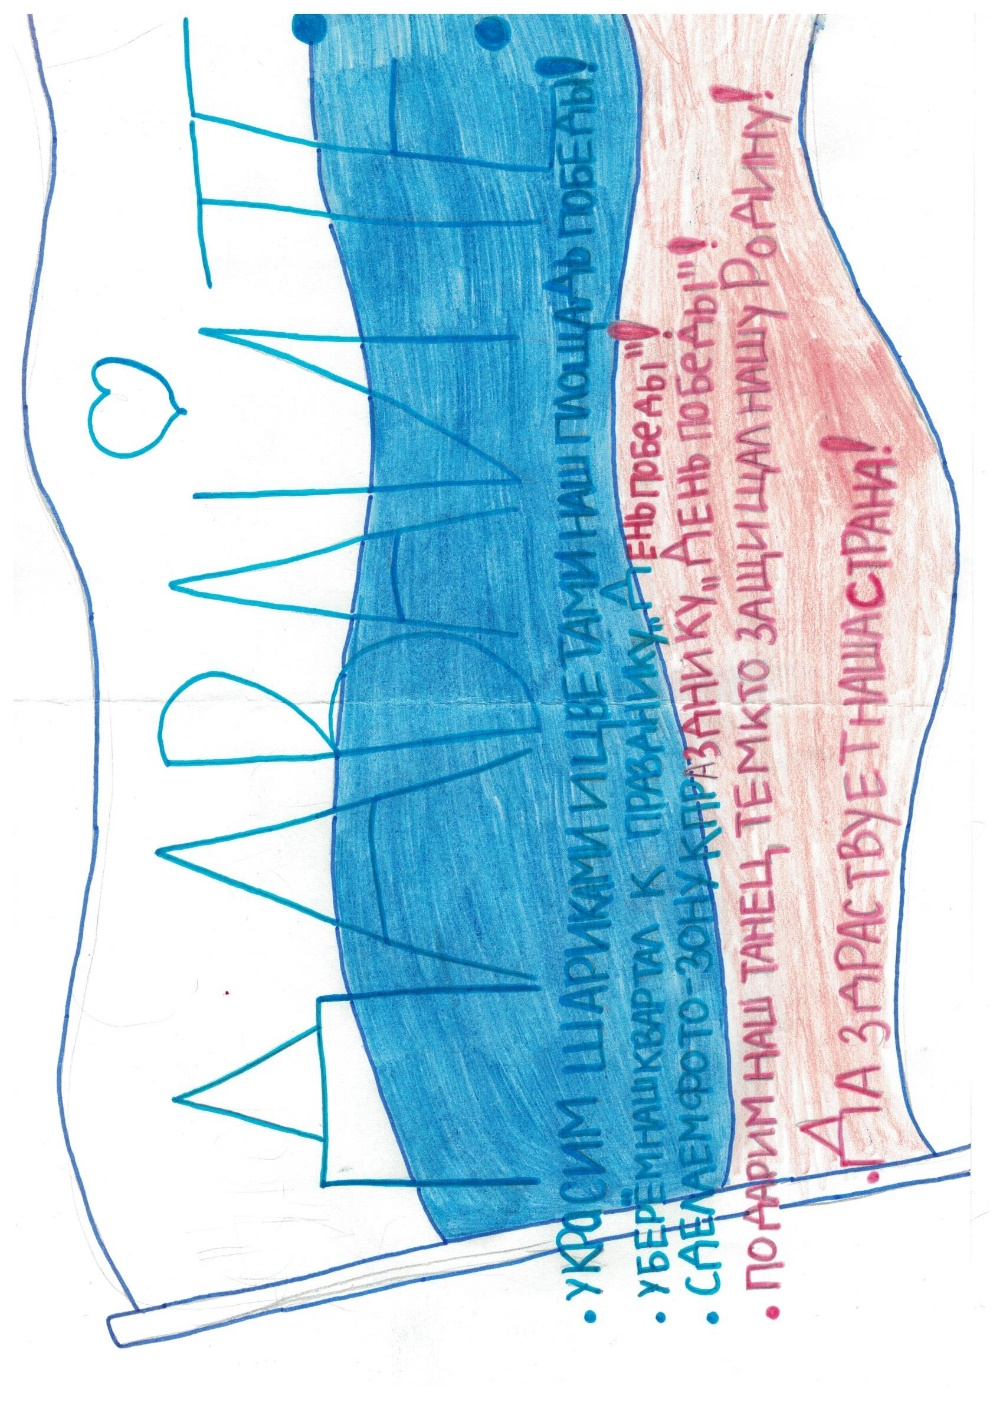 ДАВАЙТЕ:
• УКРАСИМ ШАРИКАМИ И ЦВЕТАМИ НАШ ПЛОЩАДЬ ПОБЕДЫ!
• УБЕРЁМ НАШ КВАРТАЛ К ПРАЗДНИКУ „ДЕНЬ ПОБЕДЫ"!
• СДЕЛАЕМ ФОТО-ЗОНУ К ПРАЗДНИКУ „ДЕНЬ ПОБЕДЫ"!
• ПОДАРИМ НАШ ТАНЕЦ, ТЕМ КТО ЗАЩИЩАЛ НАШУ РОДИНУ!
• ДА ЗДРАСТВУЕТ НАША СТРАНА!